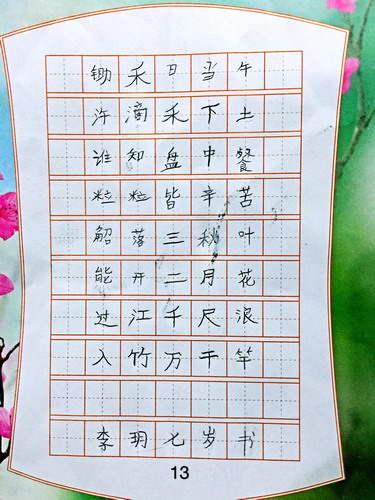 锄禾日当午
汗滴禾下土
谁知盘中餐
粒粒皆辛苦
解落三秋叶
能开二月花
过江千尺浪
入竹万干竿
李玥七岁书
13